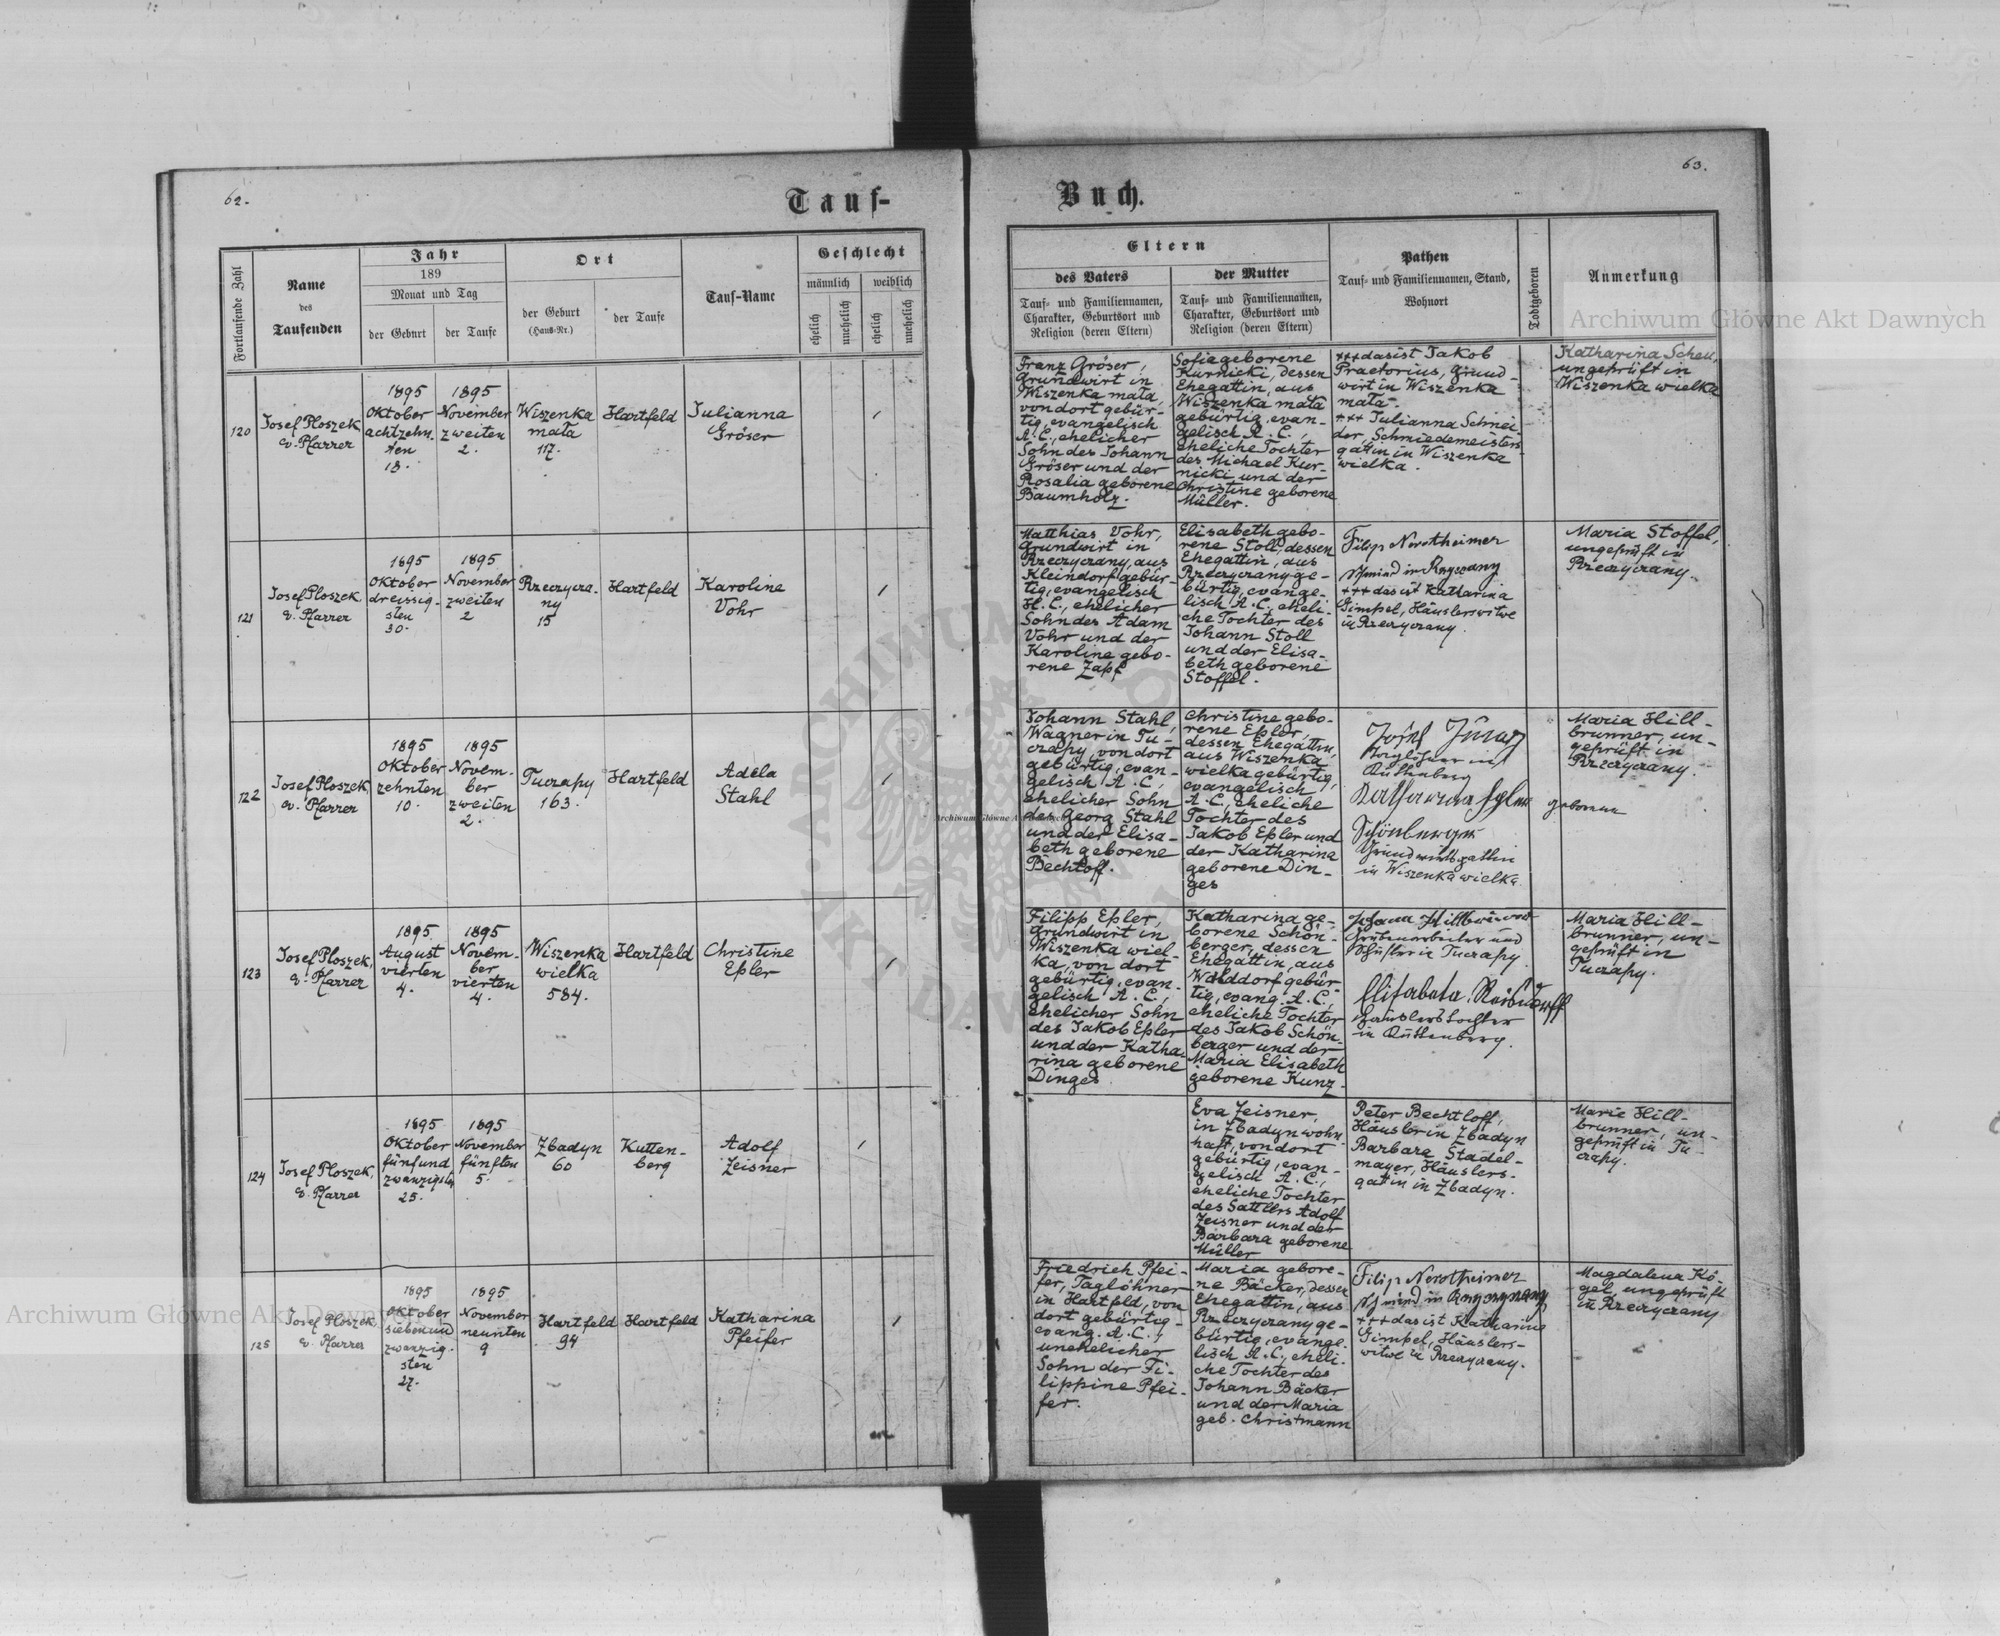 62.
Tauf-
Fortlaufende Zahl
Name
des
Taufenden
Jahr
189
Monat und Tag
der Geburt
der Taufe
Ort
der Geburt
(Haus-Nr.)
der Taufe
Tauf-Name
Geschlecht
männlich
weiblich
ehelich
unehelich
ehelich
unehelich
120
Josef Ploszek
ev. Pfarrer
1895
Oktober
achtzehn-
ten
18.
1895
November
zweiten
2.
Wiszenka
mała
117.
Hartfeld
Julianna
Gröser
121
Josef Ploszek,
ev. Pfarrer
1895
Oktober
dreissig-
sten
30.
1895
November
zweiten
2
Rzeczyca-
ny
15
Hartfeld
Karoline
Vohr
122
Josef Ploszek,
ev. Pfarrer
1895
Oktober
zehnten
10.
1895
Novem-
ber
zweiten
2.
Tuczapy
163.
Hartfeld
Adela
Stahl
123
Josef Ploszek,
ev. Pfarrer
1895
August
vierten
4.
1895
Novem-
ber
vierten
4.
Wiszenka
wielka
584.
Hartfeld
Christine
Eßler
124
Josef Ploszek,
ev. Pfarrer
1895
Oktober
fünfund
zwanzigsten
25.
1895
November
fünften
5.
Zbadyn
60
Kutten-
berg
Adolf
Zeisner
125
Josef Ploszek,
ev. Pfarrer
1895
Oktober
siebenund
zwanzig-
sten
27.
1895
November
neunten
9
Hartfeld
94
Hartfeld
Katharina
Pfeifer
63.
Buch.
Eltern
des Vaters
Tauf- und Familiennamen,
Charakter, Geburtsort und
Religion (deren Eltern)
der Mutter
Tauf- und Familiennamen,
Charakter, Geburtsort und
Religion (deren Eltern)
Pathen
Tauf- und Familiennamen, Stand,
Wohnort
Todtgeboren
Anmerkung
Franz Gröser,
Grundwirt in
Wiszenka mała,
von dort gebür-
tig, evangelisch
A. C., ehelicher
Sohn des Johann
Gröser und der
Rosalia geborene
Baumholz.
Sofie geborene
Kurnicki, dessen
Ehegattin, aus
Wiszenka mała
gebürtig, evan-
gelisch A. C.,
eheliche Tochter
des Michael Kur-
nicki und der
Christine geborene
Müller.
+++ das ist Jakob
Praetorius, Grund-
wirt in Wiszenka
mała-
+++ Julianna Schnei-
der, Schmiedemeisters-
gattin in Wiszenka
wielka.
Katharina Scheu,
ungeprüft in
Wiszenka wielka
Matthias Vohr,
Grundwirt in
Rzeczyczany, aus
Kleindorf gebür-
tig, evangelisch
H. C., ehelicher
Sohn des Adam
Vohr und der
Karoline gebo-
rene Zapf
Elisabeth gebo-
rene Stoll, dessen
Ehegattin, aus
Rzeczyczany ge-
bürtig, evange-
lisch A. C., eheli-
che Tochter des
Johann Stoll
und der Elisa-
beth geborene
Stoffel.
Filip Nerotheimer
Schmied in
+++ das ist Katharina
Gimpel, Häuslerswitwe
in Rzeczyczany.
Maria Stoffel,
ungeprüft in
Rzeczyczany.
Johann Stahl,
Wagner in Tu-
czapy, von dort
gebürtig, evan-
gelisch A. C.,
ehelicher Sohn
des Georg Stahl
und der Elisa-
beth geborene
Bechtloff.
Christine gebo-
rene Eßler,
dessen Ehegattin,
aus Wiszenka
wielka gebürtig,
evangelisch
A. C., eheliche
Tochter des
Jakob Eßler und
der Katharina
geborene Din-
ges
Taglöhner in
Kuttenberg
Katharina Eßler geborene
Schönberger
Grundwirtsgattin
in Wiszenka wielka
Maria Hill-
brunner, un-
geprüft in
Rzeczyczany.
Filipp Eßler,
Grundwirt in
Wiszenka wiel-
ka, von dort
gebürtig, evan-
gelisch A. C.,
ehelicher Sohn
des Jakob Eßler
und der Katha-
rina geborene
Dinges
Katharina ge-
borene Schön-
berger, dessen
Ehegattin, aus
Walddorf gebür-
tig, evang. A. C.,
eheliche Tochter
des Jakob Schön-
berger und der
Maria Elisabeth
geborene Kunz-
Johann Hillbrunner
Grubenarbeiter und
in Tuczapy.
Elisabeta Reisdorff
Häuslerstochter
in Kuttenberg.
Maria Hill-
brunner, un-
geprüft in
Tuczapy.
Eva Zeisner,
in Zbadyn wohn-
haft, von dort
gebürtig, evan-
gelisch A. C.,
eheliche Tochter
des Sattlers Adolf
Zeisner und der
Barbara geborene
Müller
Peter Bechtloff,
Häusler in Zbadyn
Barbara Stadel-
mayer, Häuslers-
gattin in Zbadyn.
Marie Hill-
brunner, un-
geprüft in Tu-
czapy.
Friedrich Pfei-
fer, Taglöhner
in Hartfeld, von
dort gebürtig-
evang. A. C.,
unehelicher
Sohn der Fi-
lippine Pfei-
fer.
Maria gebore-
ne Bäcker, dessen
Ehegattin, aus
Rzeczyczany ge-
bürtig, evange-
lisch A. C., eheli-
che Tochter des
Johann Bäcker
und der Maria
geb. Christmann
Filip Nerotheimer
Schmied in
+++ das ist Katharine
Gimpel, Häuslers-
witwe in Rzeczyczany.
Magdalena Kö-
gel, ungeprüft
in Rzeczyczany
Archiwum Główne Akt Dawnych
Archiwum Główne Akt Dawnych
Archiwum Główne Akt Dawnych